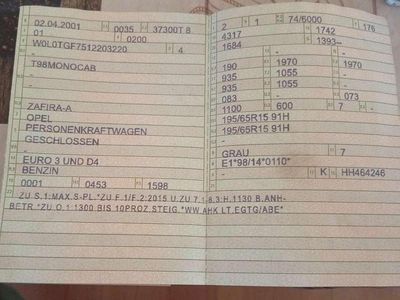 02.04.2001 0035 37300T 8
01 0200
W0L0TGF7512203220 4
-
T98MONOCAB
-
ZAFIRA-A
OPEL
PERSONENKRAFTWAGEN
GESCHLOSSEN
-
EURO 3 UND D4
BENZIN
0001 0453 1598
ZU S.1:MAX.S-PL.*ZU F.1/F.2:2015 U.ZU 7.1-8.3:H.1130 B.ANH-
BETR.*ZU O.1:1300 BIS 10PROZ.STEIG.*WW.AHK LT.EGTG/ABE*
2 1 74/6000
4317 1742 176
1684 1393--
- -
190 1970 1970
935 1055 -
935 1055 -
083 - 073
1100 600 7 -
195/65R15 91H
195/65R15 91H
-
GRAU 7
E1*98/14*0110*
- K HH464246
-